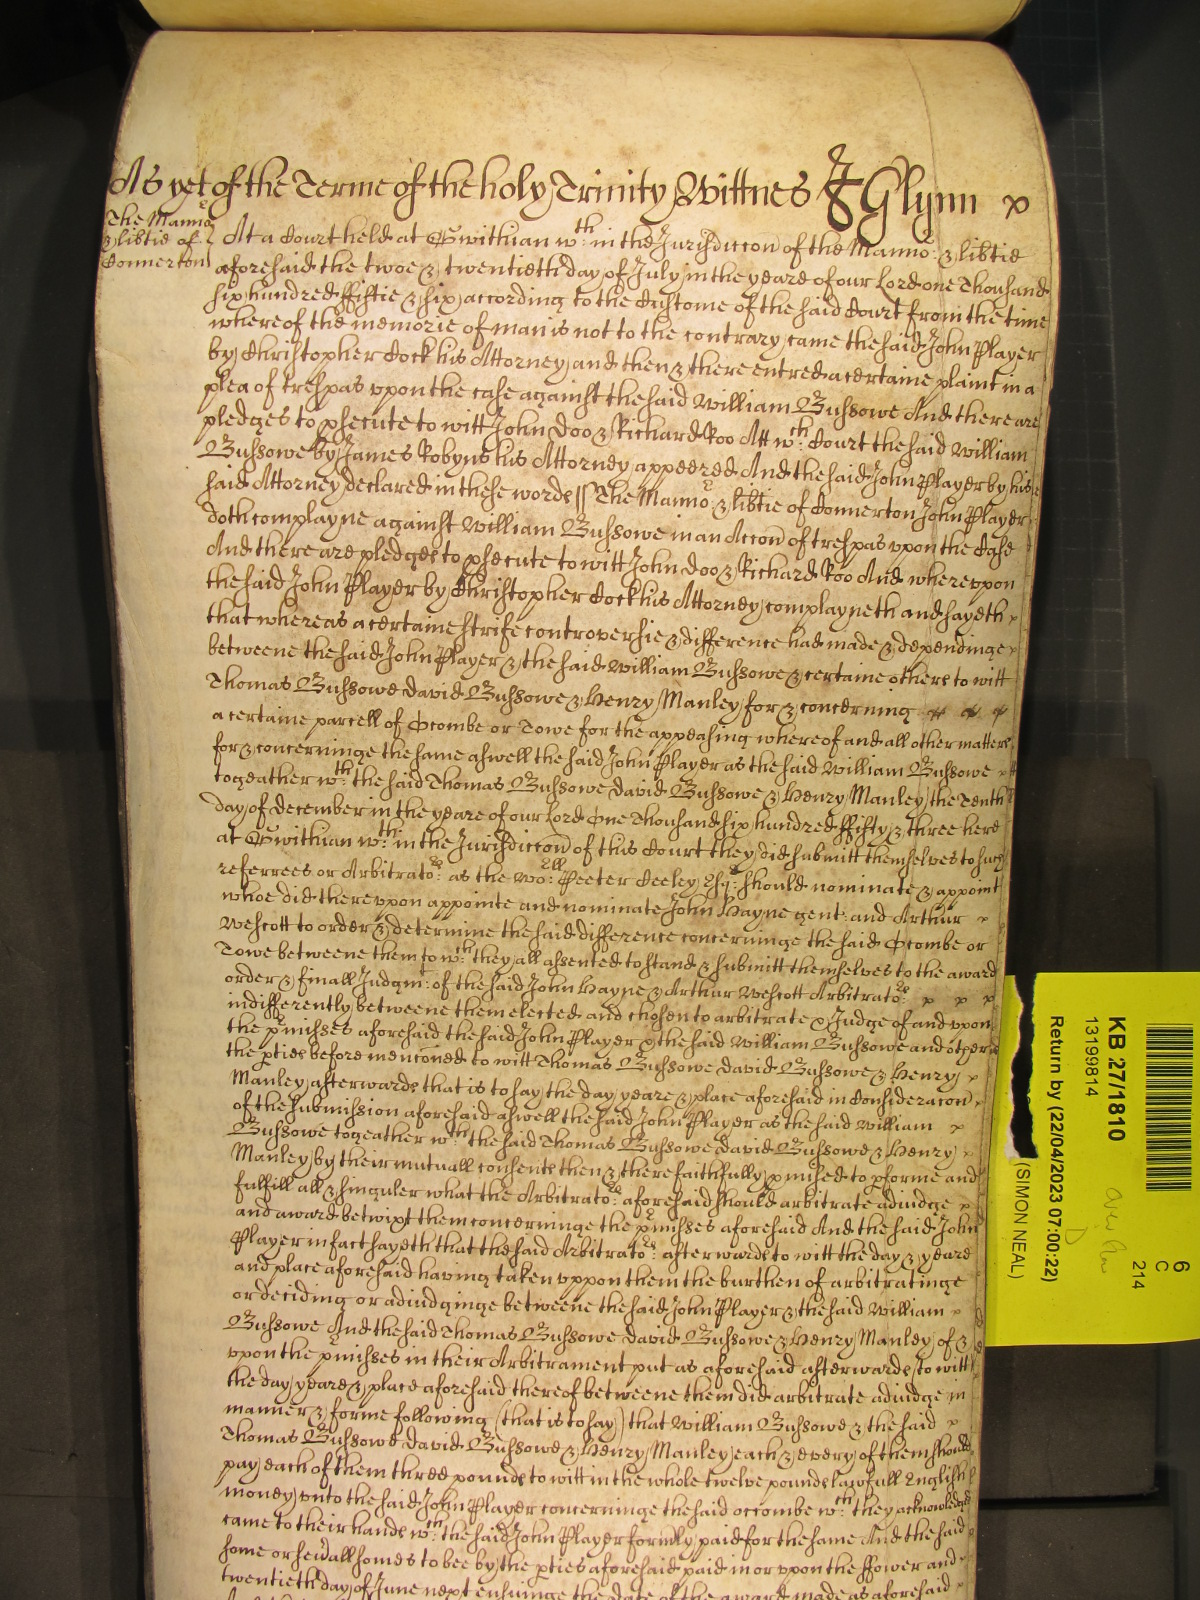 As yet of the Terme of the holy Trinity Wittnes J Glynn x
The Manno:r
& lib̃tie of
Connerton
At a Court held at Gwithuan w:th in the Jurisdiccon of the Manno: & lib̃tie
aforesaid the twoe & twentieth day of July in the yeare of our Lord one Thousand
six hundred ffiftie & six according to the Custome of the said Court from the time
whereof the memorie of man is not to the contrary came the said John Player
by Christopher Cock his Attorney and then & there entred a certaine plaint in a
plea of trespas vpon the case against the said William Bussowe And there are
pledges to p̱secute to witt John Doo & Richard Roo Att w:ch Court the said William
Bussowe by James Robyns his Attorney appeered And the said John Player by his
said Attorney declared in these words // The Manno:r & lib̃tie of Connerton John Player
doth complayne against William Bussowe in an Accon of trespas vpon the Case
And there are pledges to p̱secute to witt John Doo & Richard Roo And wherevpon
the said John Player by Christopher Cock his Attorney complayneth and sayeth
that whereas a certaine strife controversie & difference had made & dependinge
betweene the said John Player & the said William Bussowe & certaine others to witt
Thomas Bussowe David Bussowe & Henry Manley for & concerning
a certaine parcell of Ocombe or Towe for the appeasing whereof and all other matters
for & concerninge the same aswell the said John Player as the said William Bussowe
togeather w:th the said Thomas Bussowe David Bussowe & Henry Manley the Tenth
day of December in the yeare of our Lord One Thousand six hundred ffifty & three here
at Gwithuan w:th in the Jurisdiccon of this Court they did submitt themselves to such
referrees or Arbitrato:rs as the wo:ll Peeter Ceeley Esq: should nominate & appoint
whoe did therevpon appointe and nominate John Hayne gent: and Arthur
Wescott to order & determine the said difference concerninge the said Ocombe or
Towe betweene them to w:ch they all assented to stand & submitt themselves to the award
order & finall Judgm:t of the said John Hayne & Arthur Wescott Arbitrato:rs
indifferently betweene them elected and chosen to arbitrate & Judge of and vpon
the p̱misses aforesaid the said John Player & the said William Bussowe and others
the p̱ties before mencõned to witt Thomas Bussowe David Bussowe & Henry
Manley afterwards that is to say the day yeare & place aforesaid in Consideracon
of the submission aforesaid aswell the said John Player as the said William
Bussowe togeather w:th the said Thomas Bussowe David Bussowe & Henry
Manley by their mutuall consents then & there faithfully p̱mised to p̱forme and
fulfill all & singuler what the Arbitrato:rs aforesaid should arbitrate adiudge
and award betwixt them concerninge the p̱misses aforesaid And the said John
Player in fact sayeth that the said Arbitrato:rs afterwards to witt the day & yeare
and place aforesaid having taken vppon them the burthen of arbitratinge
or deciding or adiudginge betweene the said John Player & the said William
Bussowe And the said Thomas Bussowe David Bussowe & Henry Manley of &
vpon the p̱misses in their Arbitrament put as aforesaid afterwards to witt
the day yeare & place aforesaid thereof betweene them did arbitrate adiudge in
manner & forme following (that is to say) that William Bussowe & the said
Thomas Bussowe David Bussowe & Henry Manley each & every of them should
pay each of them three pounds to witt in the whole twelve pounds lawfull English
money vnto the said John Player concerninge the said occombe w:ch they acknowledged
came to their hands w:ch the said John Player form̃ly paid for the same And the said
some or sev̾all somes to bee by the p̱ties aforesaid paid in or vpon the ffower and
twentieth day of June next ensuinge the date of the award made as aforesaid
KB 27/1810
13199814
Return by (22/04/2023 07:00:22)
(SIMON NEAL)
6
C
214